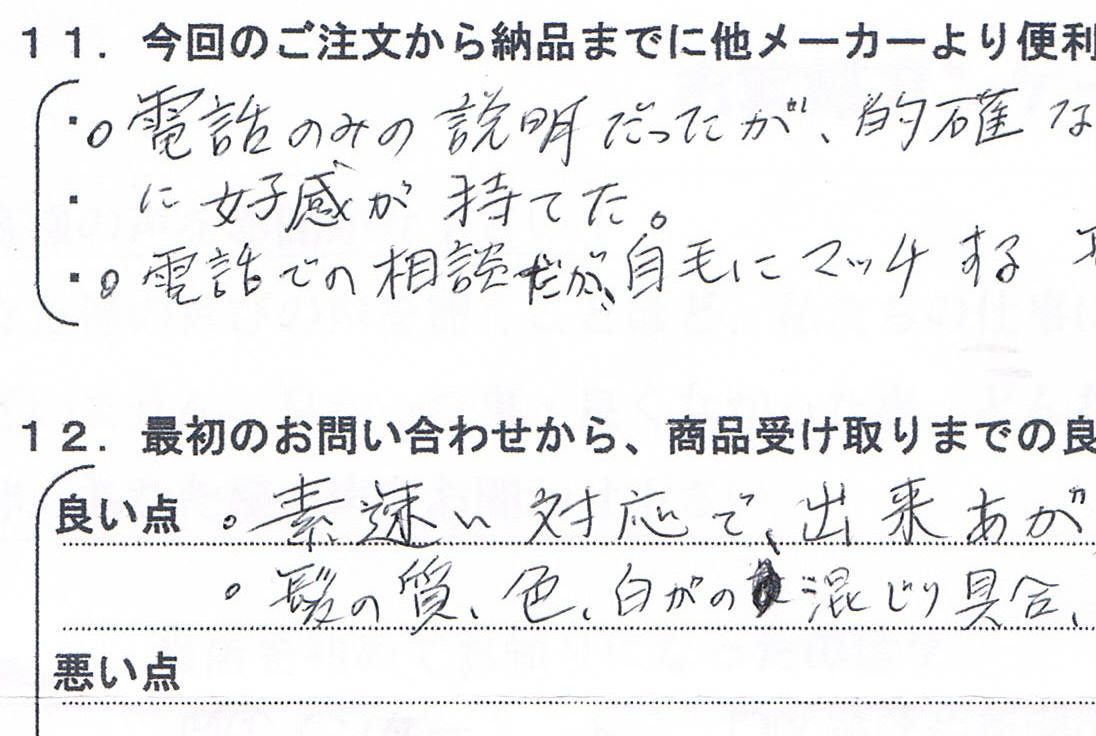 11. 今回のご注文から納品までに他メーカーより便利
・○電話のみの説明だったが、的確な
・ に好感が持てた。
・○電話での相談だが、自毛にマッチする
12. 最初のお問い合わせから、商品受け取りまでの良
良い点 ○素速い対応で、出来あが
○髪の質、色、白がの混じり具合、
悪い点